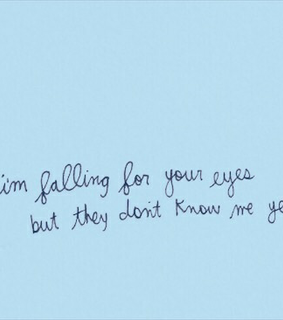 im falling for your eyes
but they don't know me ye